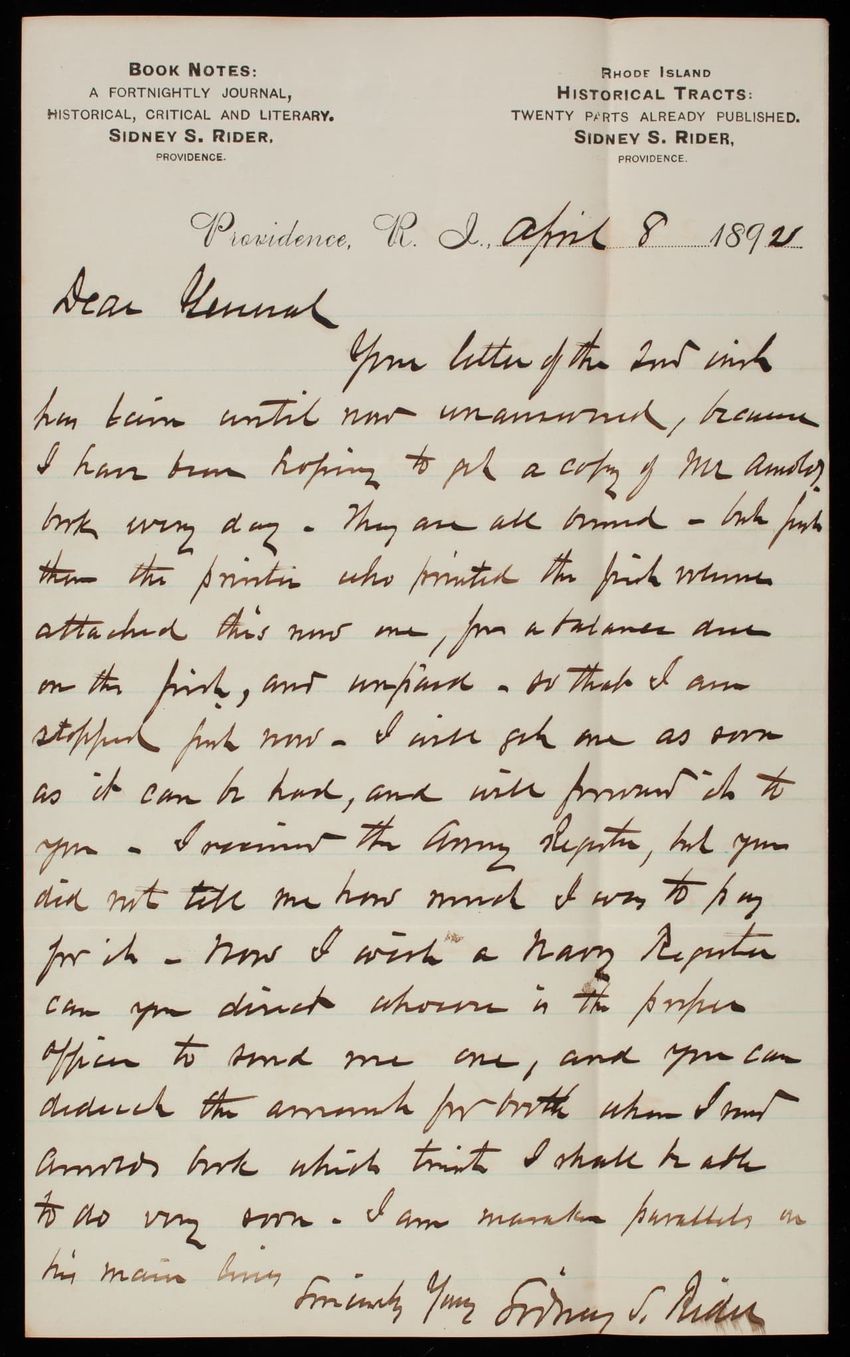 BOOK NOTES:
A FORTNIGHTLY JOURNAL,
HISTORICAL, CRITICAL AND LITERARY.
SIDNEY S. RIDER,
PROVIDENCE.
RHODE ISLAND
HISTORICAL TRACTS:
TWENTY PARTS ALREADY PUBLISHED.
SIDNEY S. RIDER,
PROVIDENCE.
Providence, R. I., April 8 1892
Dear General
Your letter of the 2nd inst
has been until now unanswered, because
I have been hoping to get a copy of Mr Arnolds
book every day - They are all bound - but just
then the printer who printed the first volume
attached this new one, for a balance due
on the first, and unpaid - so that I am
stopped just now - I will get one as soon
as it can be had, and will forward it to
you - I received the Army Register, but you
did not tell me how much I was to pay
for it - Now I wish a Navy Register
can you direct whoever is the proper
officer to send me one, and you can
deduct the amount for both when I send
Arnolds book which I shall be able
to do very soon - I am parallels on
his main lines
Sincerely Yours Sidney S. Rider